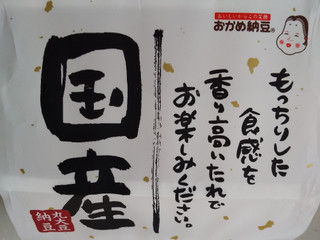 おいしいたっぷりの笑顔
おかめ納豆®
もっちりした
食感を
香り高いたれで
お楽しみください。
国産
丸大豆
納豆